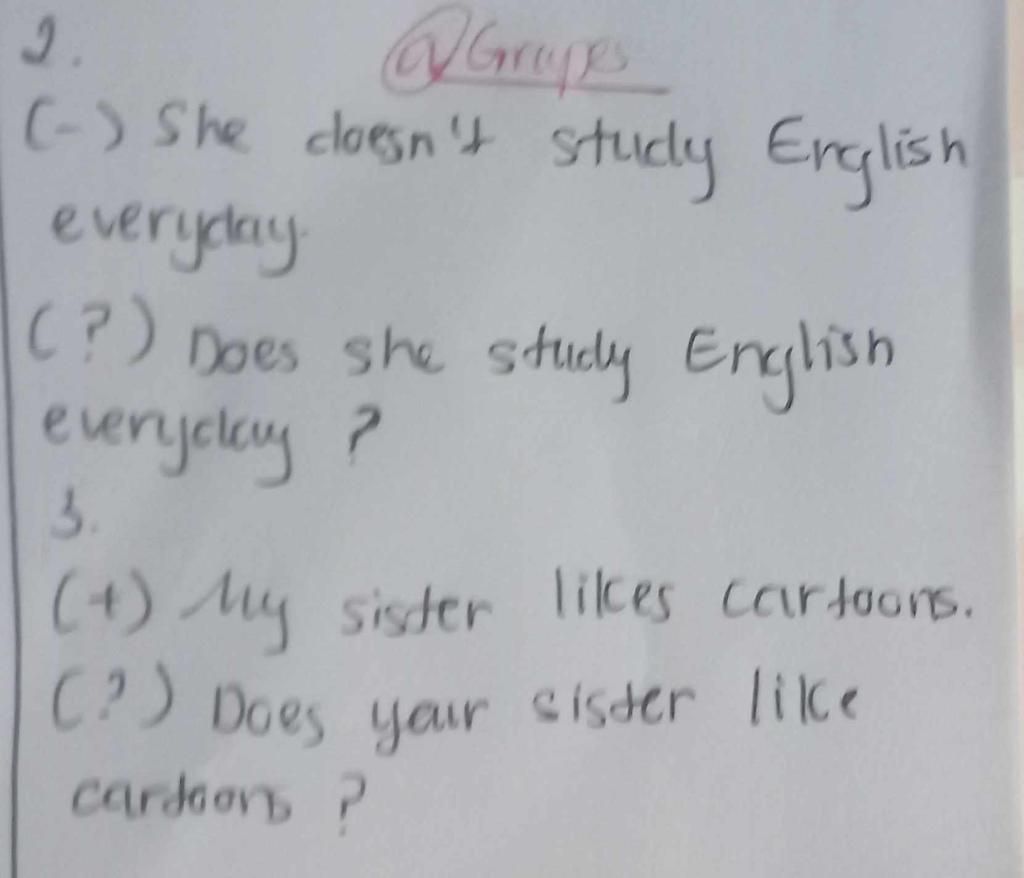 2.
@Grapes
(-) She doesn't study English
everyday.
(?) Does she study English
everyday ?
3.
(+) My sister likes cartoons.
(?) Does your sister like
cartoons ?